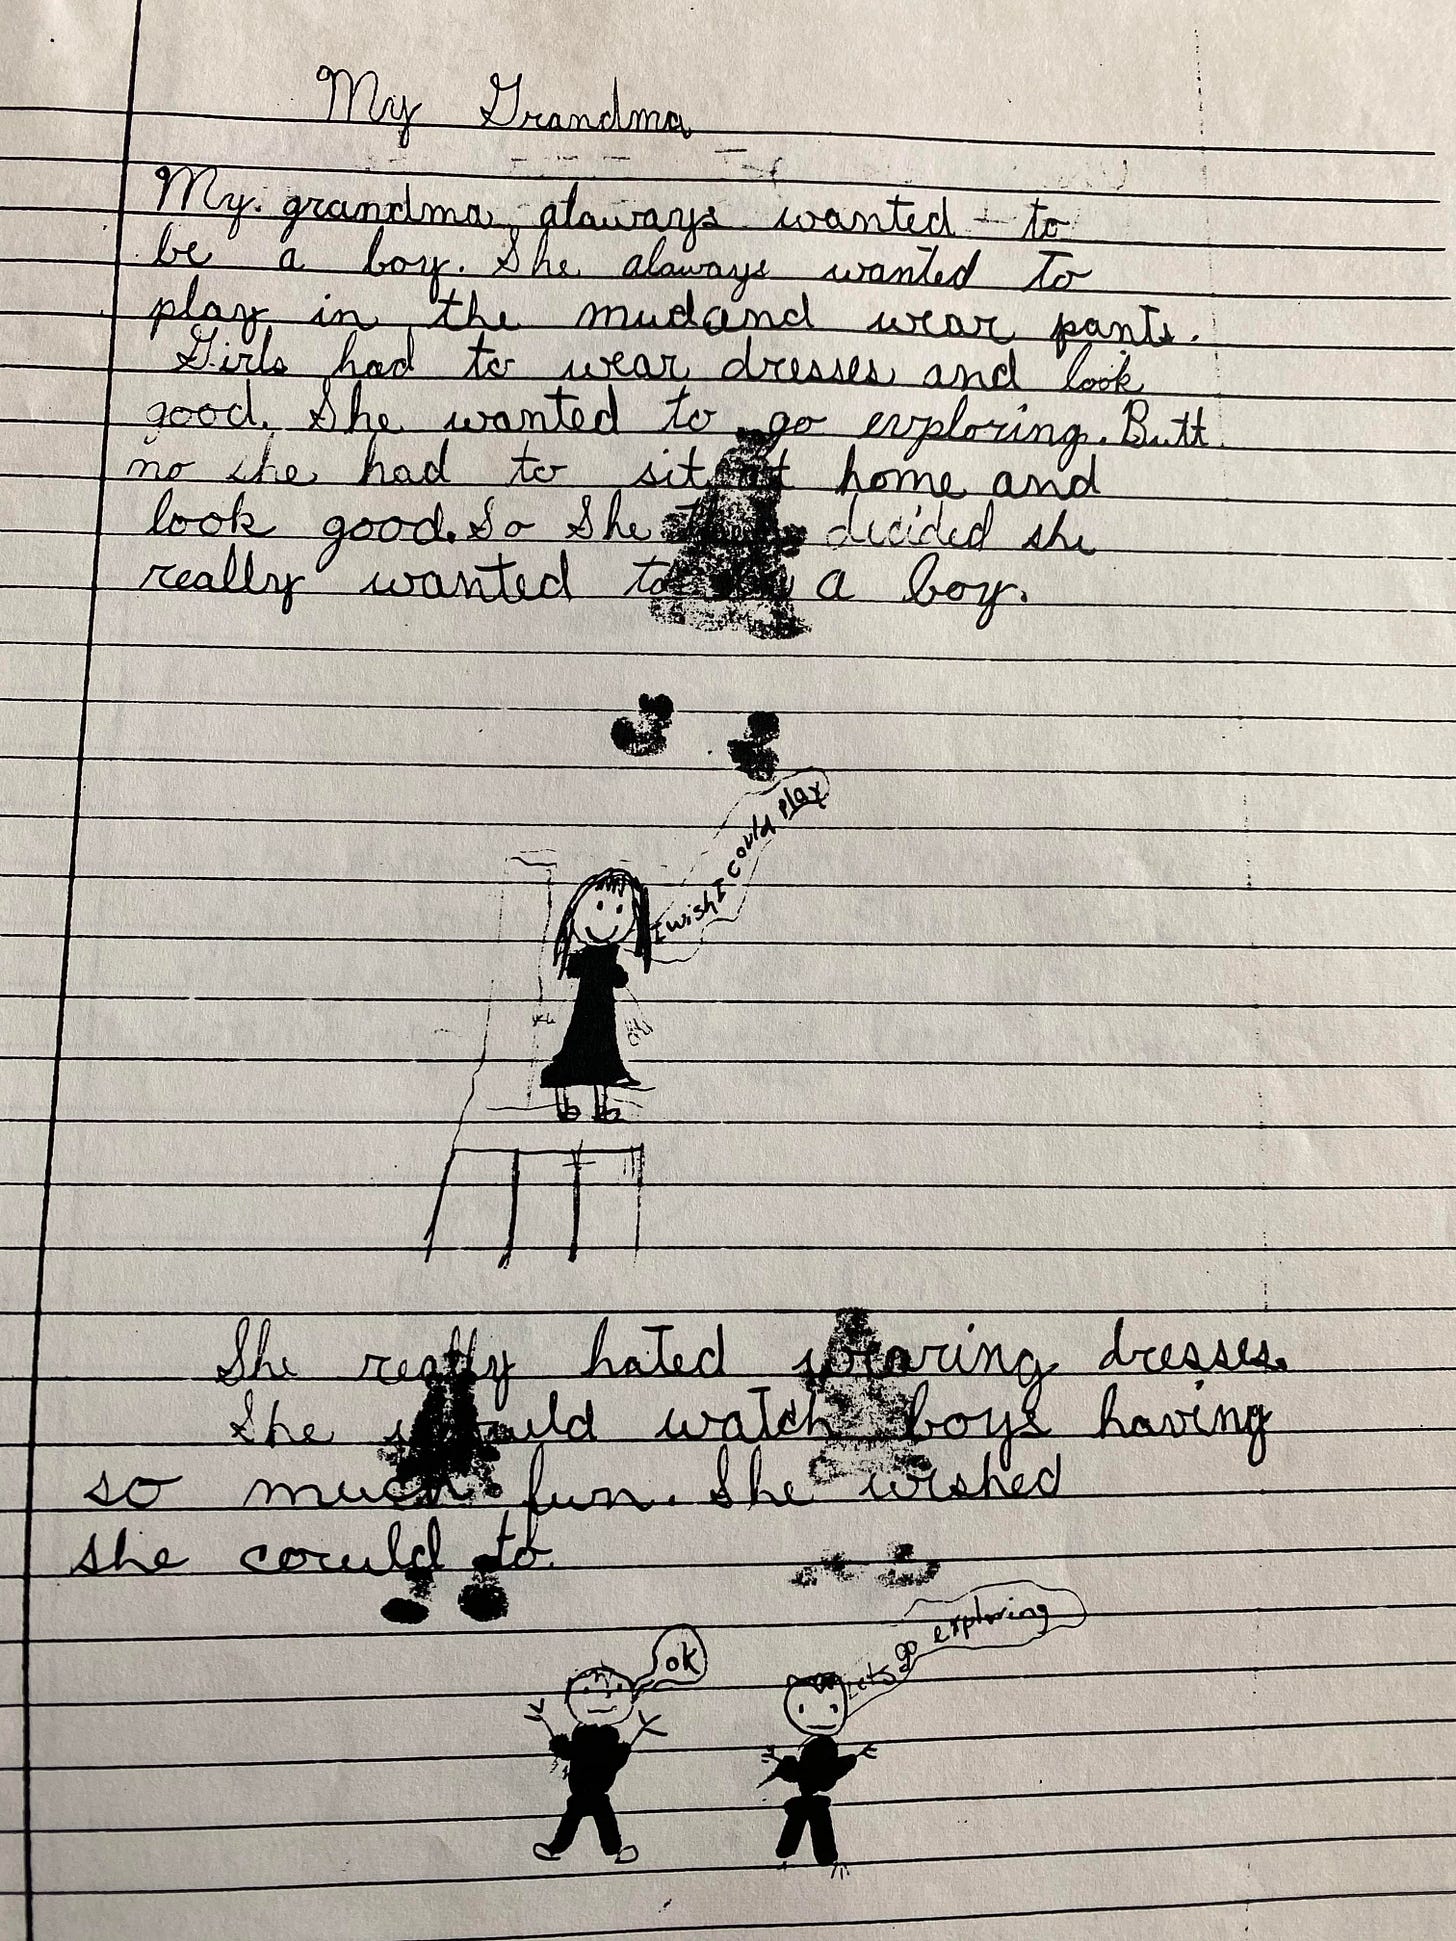 My Grandma
My grandma alaways wanted to
be a boy. She alaways wanted to
play in the mud and wear pants.
Girls had to wear dresses and look
good. She wanted to go exploring. Butt
no she had to sit at home and
look good. So she decided she
really wanted to a boy.
I wish I could play
She really hated wearing dresses.
She would watch boys having
so much fun. She wished
she could to.
ok
lets go exploring